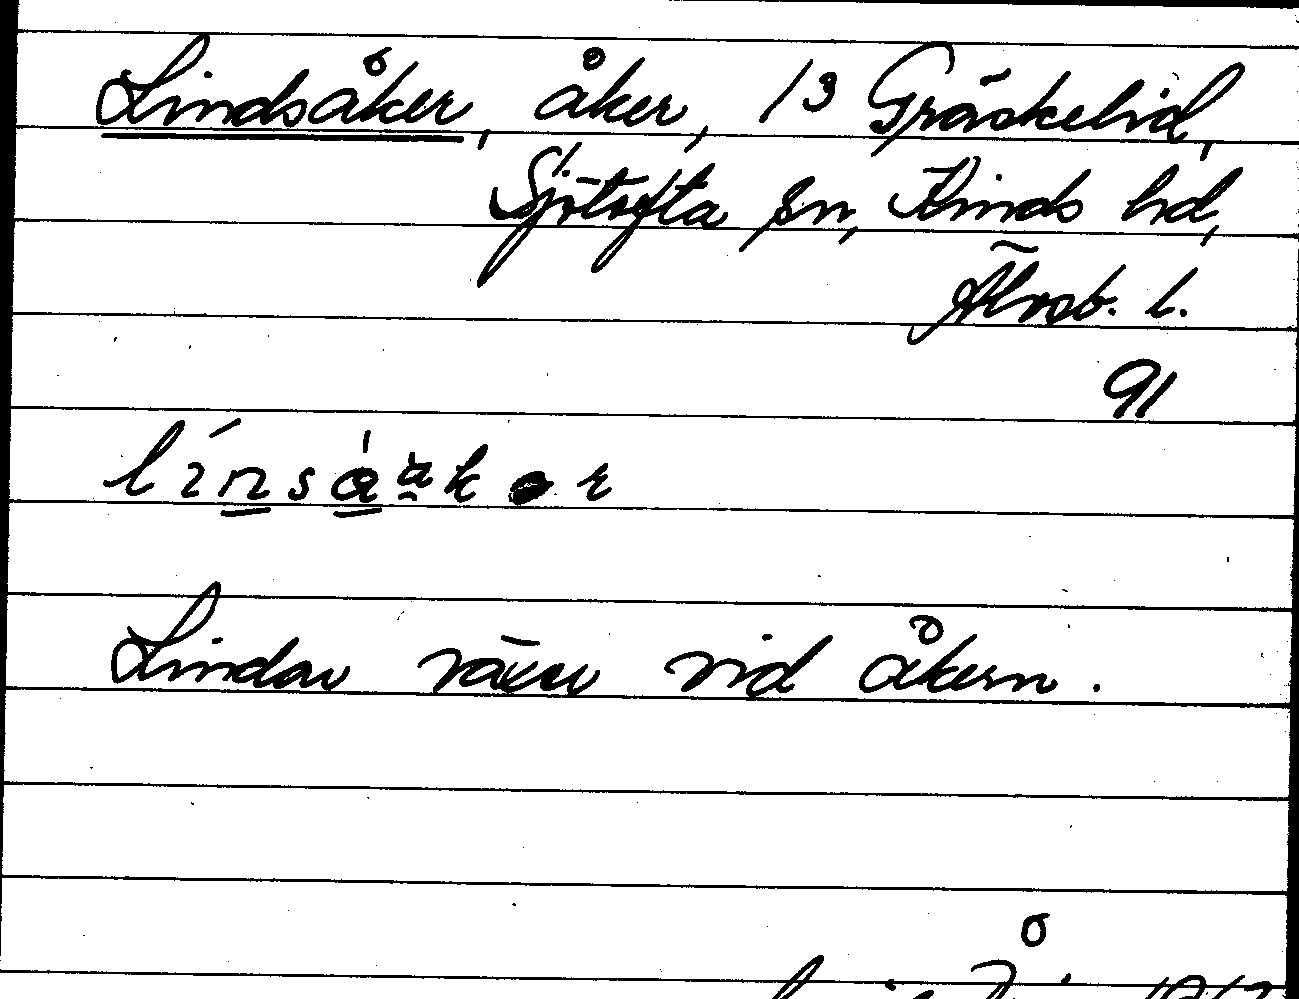 Lindsåker, åker, 13 Gräskelid,
Sjötofta sn, Kinds hd,
Älvsb. l.
91
Lindar växer vid åkern.